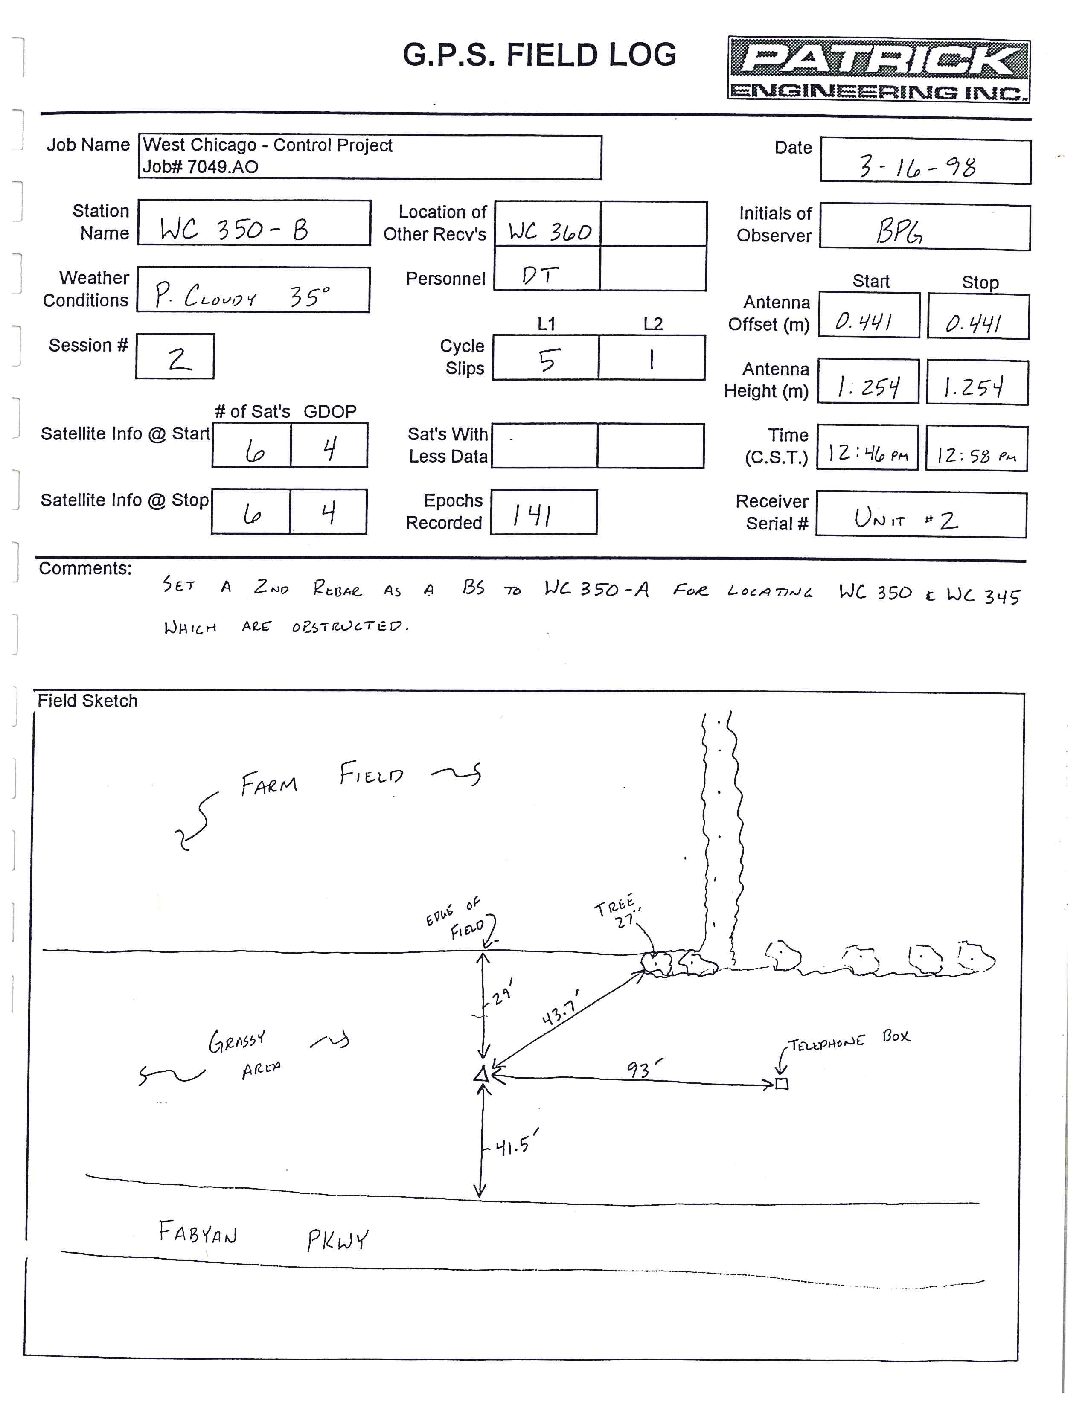 G.P.S. FIELD LOG
PATRICK
ENGINEERING INC.
Job Name West Chicago - Control Project
Job# 7049.AO
Date 3-16-98
Station Name WC 350-B
Location of Other Recv's WC 360
Initials of Observer BPG
Weather Conditions P. CLOUDY 35°
Personnel DT
Start Stop
Antenna Offset (m) 0.441 0.441
Session # 2
L1 L2
Cycle Slips 5 1
Antenna Height (m) 1.254 1.254
# of Sat's GDOP
Satellite Info @ Start 6 4
Sat's With Less Data
Time (C.S.T.) 12:46 PM 12:58 PM
Satellite Info @ Stop 6 4
Epochs Recorded 141
Receiver Serial # UNIT #2
Comments:
SET A 2ND REBAR AS A BS TO WC 350-A FOR LOCATING WC 350 & WC 345
WHICH ARE OBSTRUCTED.
Field Sketch
FARM FIELD
EDGE OF
FIELD
TREE
27"
29'
43.7'
GRASSY
AREA
TELEPHONE BOX
93'
41.5'
FABYAN PKWY